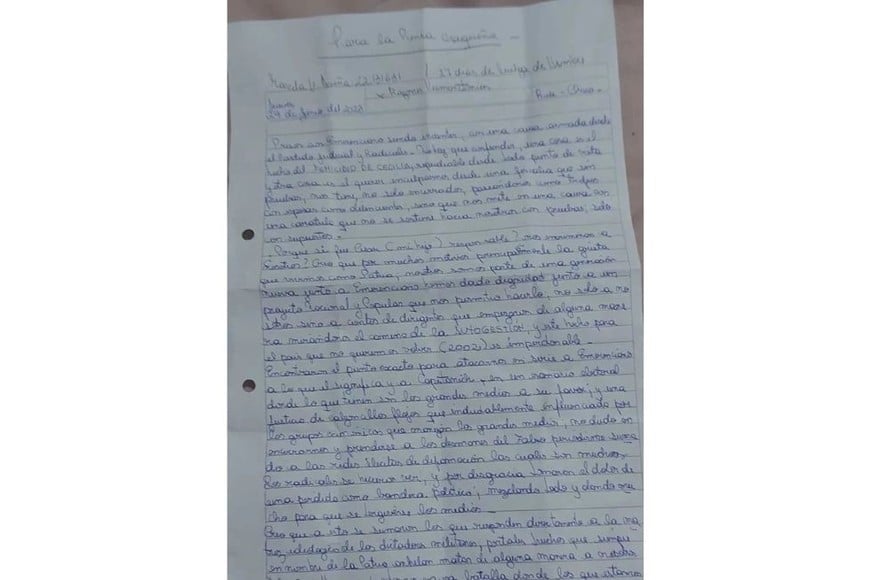 Para la Prensa chaqueña -
Marcela V. Acuña / 27 días de huelga de hambre
29 de Junio del 2023 Rcia - Chaco -
Presos con Emerenciano siendo inocentes, con una causa armada desde
el partido judicial y Radicales. No hay que confundir, una cosa es el
hecho del HOMICIDIO DE CECILIA, repudiable desde todo punto de vista
y otra cosa es el querer inculparnos desde una fiscalía que sin
pruebas, nos tiene, no solo encerrados, paseandonos como trofeos
con esposas como delincuentes, sino que nos mete en una causa con
una caratula que no se sostiene hacia nosotros con pruebas, solo
con supuestos.
Porque si fue César (mi hijo) responsable? nos incriminan a
nosotros? Creo que por muchos motivos principalmente la grieta
que vivimos como Patria, nosotros somos parte de una generación
nueva junto a Emerenciano hemos dado dignidad junto a un
proyecto nacional y Popular que nos permitio hacerlo, no solo a no
sotros sino a cientos de dirigentes que empezaron de alguna mane
ra mirandose el camino de la AUTOGESTIÓN, y este hecho para
el país que no queremos volver (2002) es imperdonable.
Encontraron el punto exacto para atacarnos en serie a Emerenciano
a lo que el significa y a Capitanich, en un escenario electoral
donde lo que tienen son los grandes medios a su favor, y una
justicia de calzoncillos flojos que indudablemente influenciado por
los grupos económicos que manejan los grandes medios, no dudo en
encerrarnos y prenderse a los desmanes del falso periodismo suma
do a las redes ilícitas de difamación las cuales son muchas.
Los radicales se hicieron ver, y por desgracia tomaron el dolor de
una perdida como bandera política, mezclando todo y dando ma
cho para que se engorden los medios.
Creo que a esto se sumaron los que responden directamente a la ma
triz ideologica de los dictadores militares, portales truchos que siempre
en nombre de la Patria anhelan matar de alguna manera a nuestros
batalla donde los que estamos